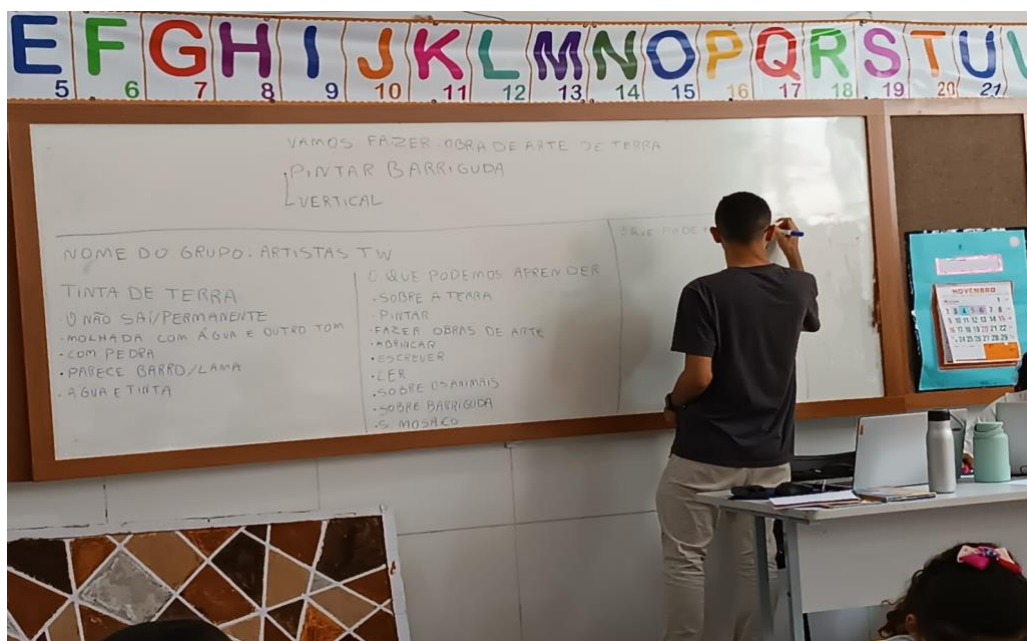 E F G H I J K L M N O P Q R S T U
5 6 7 8 9 10 11 12 13 14 15 16 17 18 19 20 21
VAMOS FAZER OBRA DE ARTE DE TERRA
PINTAR BARRIGUDA
VERTICAL
NOME DO GRUPO: ARTISTAS TW
TINTA DE TERRA
NÃO SAI/PERMANENTE
- MOLHADA COM ÁGUA E OUTRO TOM
- COM PEDRA
- PARECE BARRO/LAMA
- ÁGUA E TINTA
O QUE PODEMOS APRENDER
- SOBRE A TERRA
- PINTAR
- FAZER OBRAS DE ARTE
- ESCREVER
- LER
- SOBRE OS ANIMAIS
- SOBRE BARRIGUDA
- S. MOSAICO
O QUE PODE
NOVEMBRO